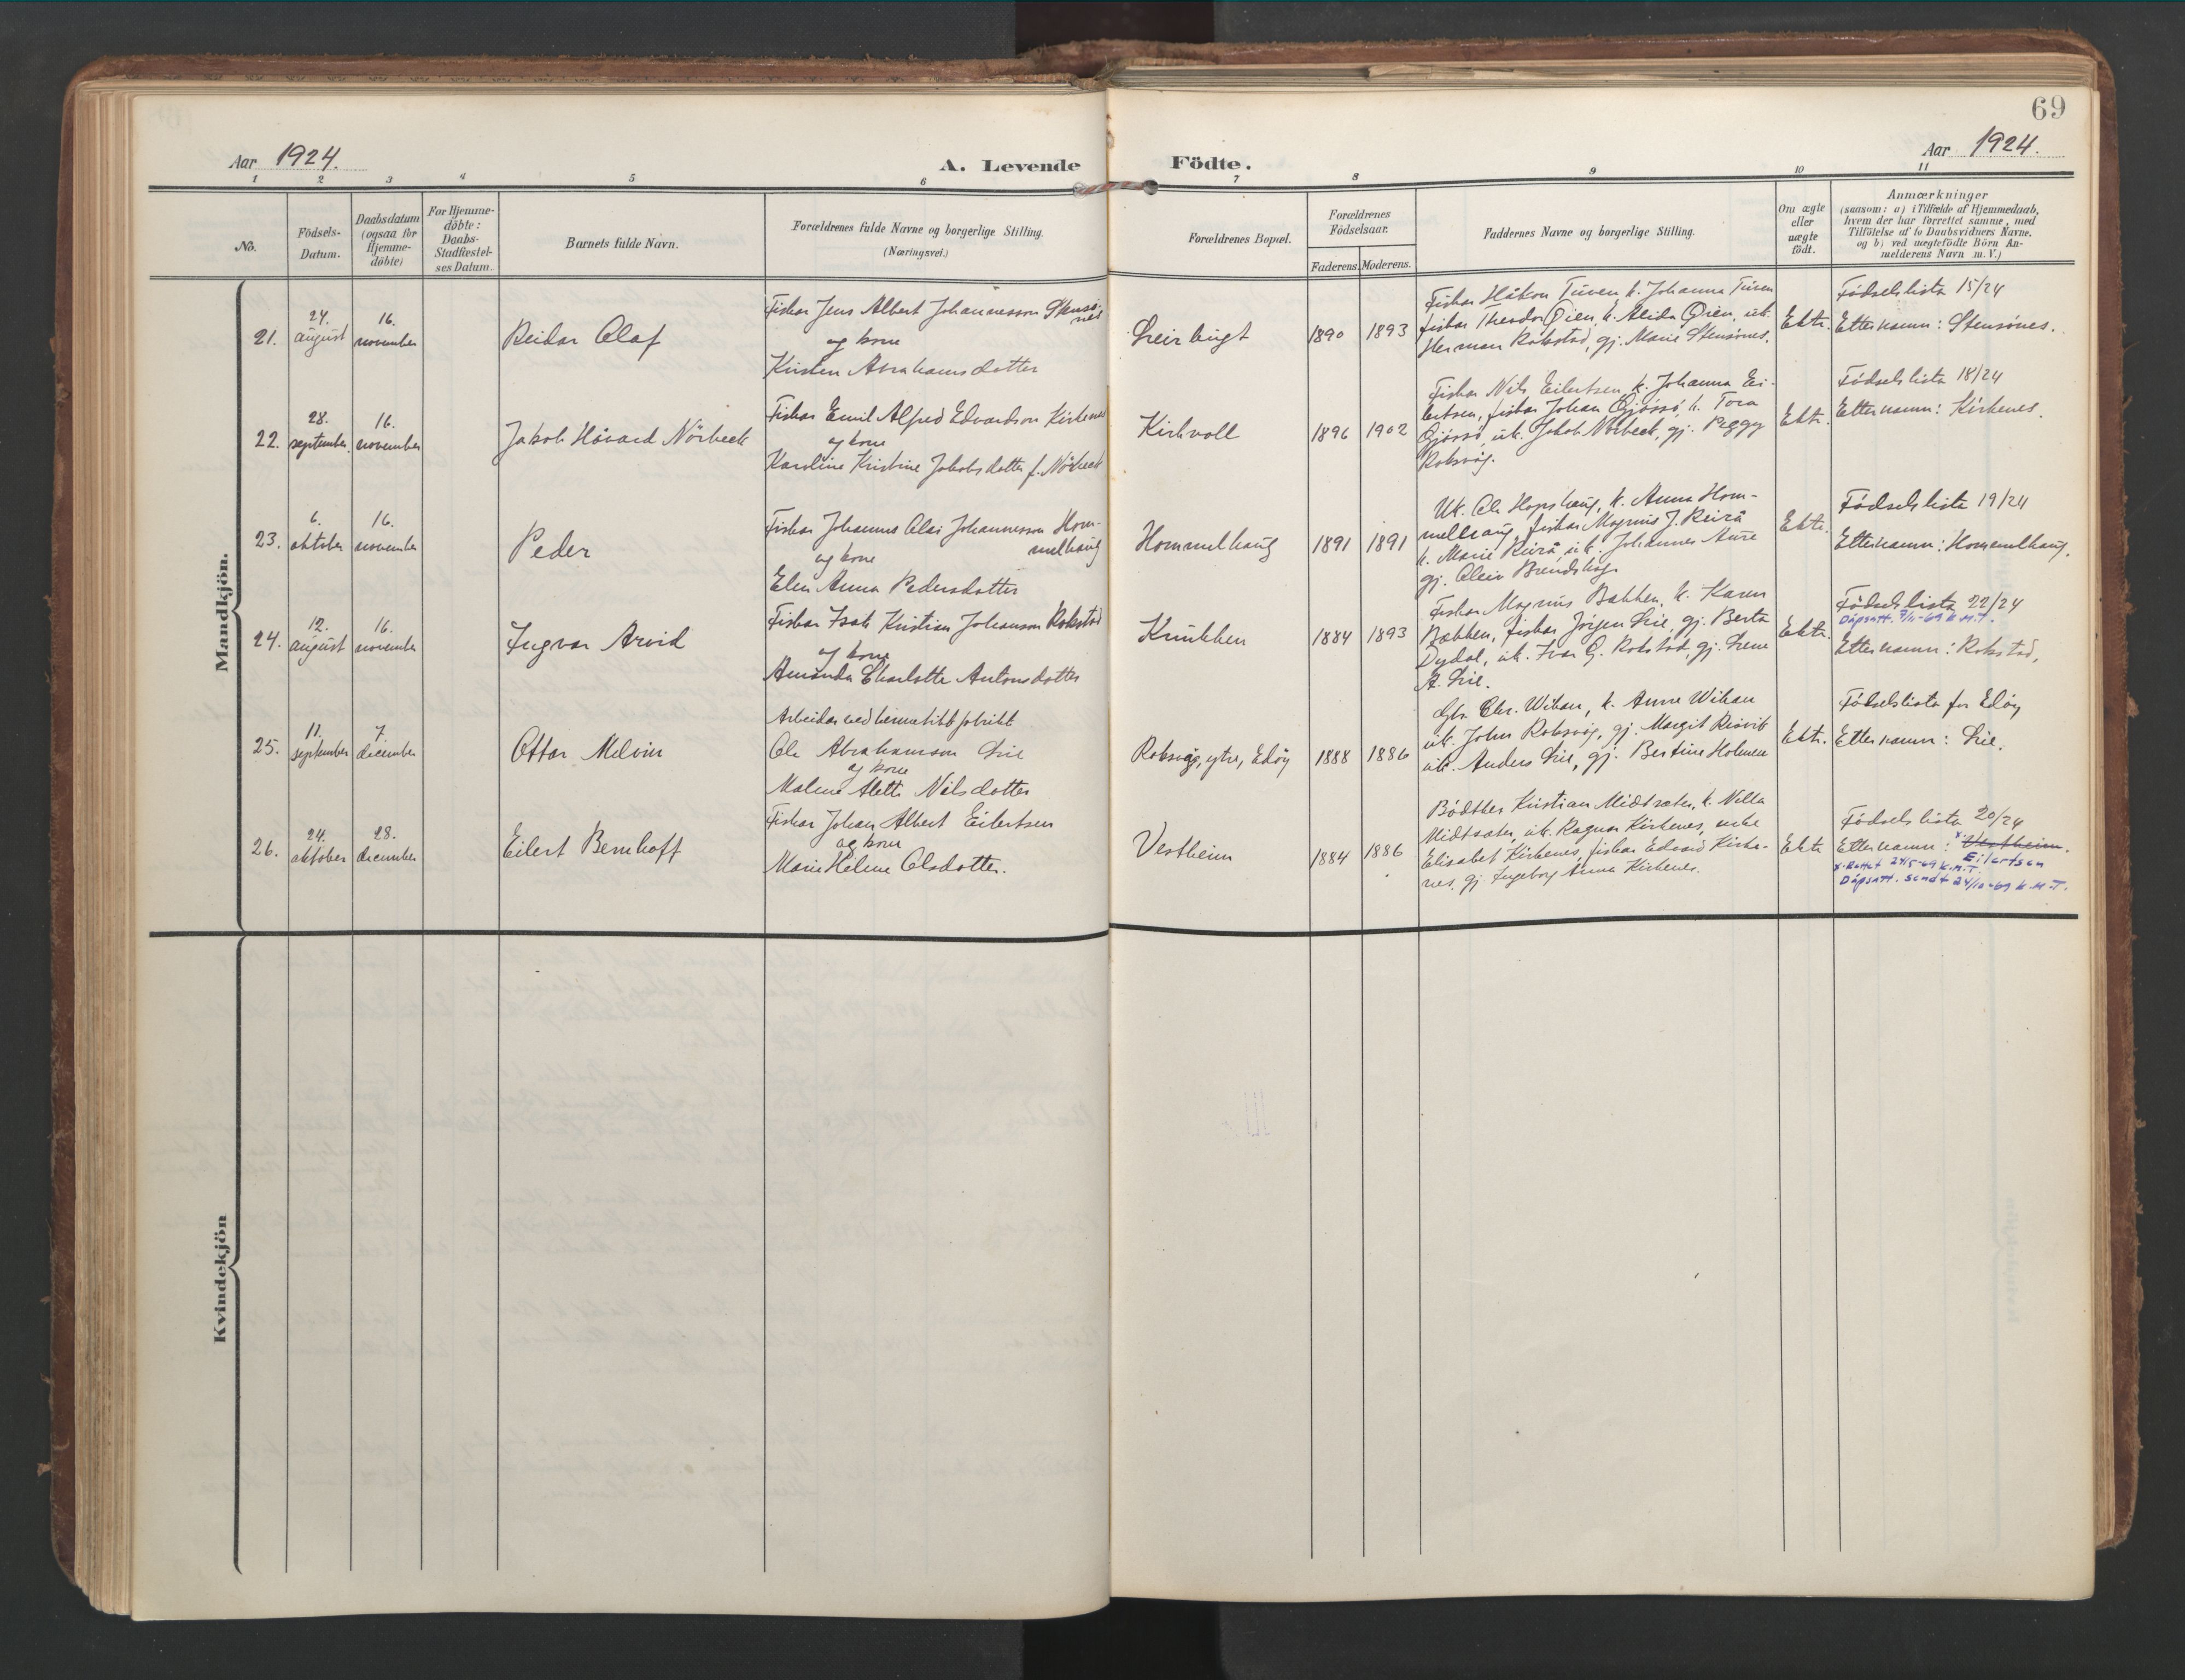 69
Aar 1924.
A. Levende
Födte.
Aar 1924.
1 2 3 4 5 6 7 8 9 10 11
No.
Födsels-
Datum.
Daabsdatum
(ogsaa for
Hjemme-
döbte)
For Hjemme-
döbte:
Daabs-
Stadfæstel-
ses Datum.
Barnets fulde Navn.
Forældrenes fulde Navne og borgerlige Stilling.
(Næringsvei.)
Forældrenes Bopæl.
Forældrenes
Födselsaar.
Faderens. Moderens.
Faddernes Navne og borgerlige Stilling.
Om ægte
eller
uægte
födt.
Anmærkninger
(saasom: a) i Tilfælde af Hjemmedaab,
hvem der har forrettet samme, med
Tilföielse af to Daabsvidners Navne,
og b) ved uægtefödte Börn An-
melderens Navn m. V.)
Mandkjön.
21.
24.
august
16.
november
Reidar Olaf
Fiskar Jens Albert Johannesson Stensö-
nes
og kone
Kristen Abrahamsdotter
Leirbugt
1890
1893
Fiskar Håkon Tuven k. Johanna Tuven
fiskar Theodor Öien, k. Alida Öien, uk.
Herman Rokstad, gj. Marie Stensönes.
Ekte.
Födselslista 15/24
Etternamn: Stensönes.
22.
28.
september.
16.
november
Jakob Håvard Nörbeck
Fiskar Emil Alfred Edvardson Kirkenes
og kone
Karoline Kristine Jakobsdotter f. Nörbeck
Kirkvoll
1896
1902
Fiskar Nils Eilertsen, k. Johanna Ei-
lertsen, fiskar Johan Gjössö, k. Tora
Gjössö, uk. Jakob Nörbeck, gj. Peggy
Roksvåg.
Ekte.
Födselslista 18/24
Etternamn: Kirkenes.
23.
6.
oktober
16.
november
Peder
Fiskar Johannes Olai Johannesson Hom-
melhaug
og kone
Elen Anna Pedersdotter
Hommelhaug
1891
1891
Uk. Ole Hopshaug, k. Anna Hom-
melhaug, fiskar Magnus J. Reirå
k. Marie Reirå, uk. Johannes Aure
gj. Oleiv Brendshög.
Ekte.
Födselslista 19/24
Etternamn: Hommelhaug.
24.
12.
august
16.
november
Ingvar Arvid
Fiskar Isak Kristian Johanson Rokstad
og kone
Amanda Charlotte Antonsdotter
Knubben
1884
1893
Fiskar Magnus Bakken, k. Karen
Bakken, fiskar Jörgen Lie, gj. Berta
Dydal, uk. Ivar G. Rokstad, gj. Lene
A. Lie.
Ekte.
Födselslista 22/24
Dåpsatt. 7/11-69 K.M.T.
Etternamn: Rokstad.
25.
11.
september
7.
december
Ottar Melvin
Arbeidar ved hermetikkfabrikk
Ole Abrahamson Lie
og kone
Malene Aletta Nilsdotter
Roksvåg, ytre, Edöy
1888
1886
Gbr. Chr. Wikan, k. Anne Wikan
uk. John Roksvåg, gj. Margit Reisvik
uk. Anders Lie, gj. Bertine Holmen
Ekte.
Födselslista for Edöy
Etternamn: Lie.
26.
24.
oktober
28.
december
Eilert Bernhoff
Fiskar Johan Albert Eilertsen
og kone
Marie Helene Olsdotter.
Vestheim
1884
1886
Bödtker Kristian Midtsæter, k. Nella
Midtsæter, uk. Ragnar Kirkenes, enke
Elisabet Kirkenes, fiskar Edvard Kirke-
nes, gj. Ingeborg Anna Kirkenes.
Ekte
Födselslista 20/24
Etternamn: x. Vestheim.
Eilertsen
x. Rettet 24/5-69 K.M.T.
Dåpsatt. sendt 24/10-69 K.M.T.
Kvindekjön